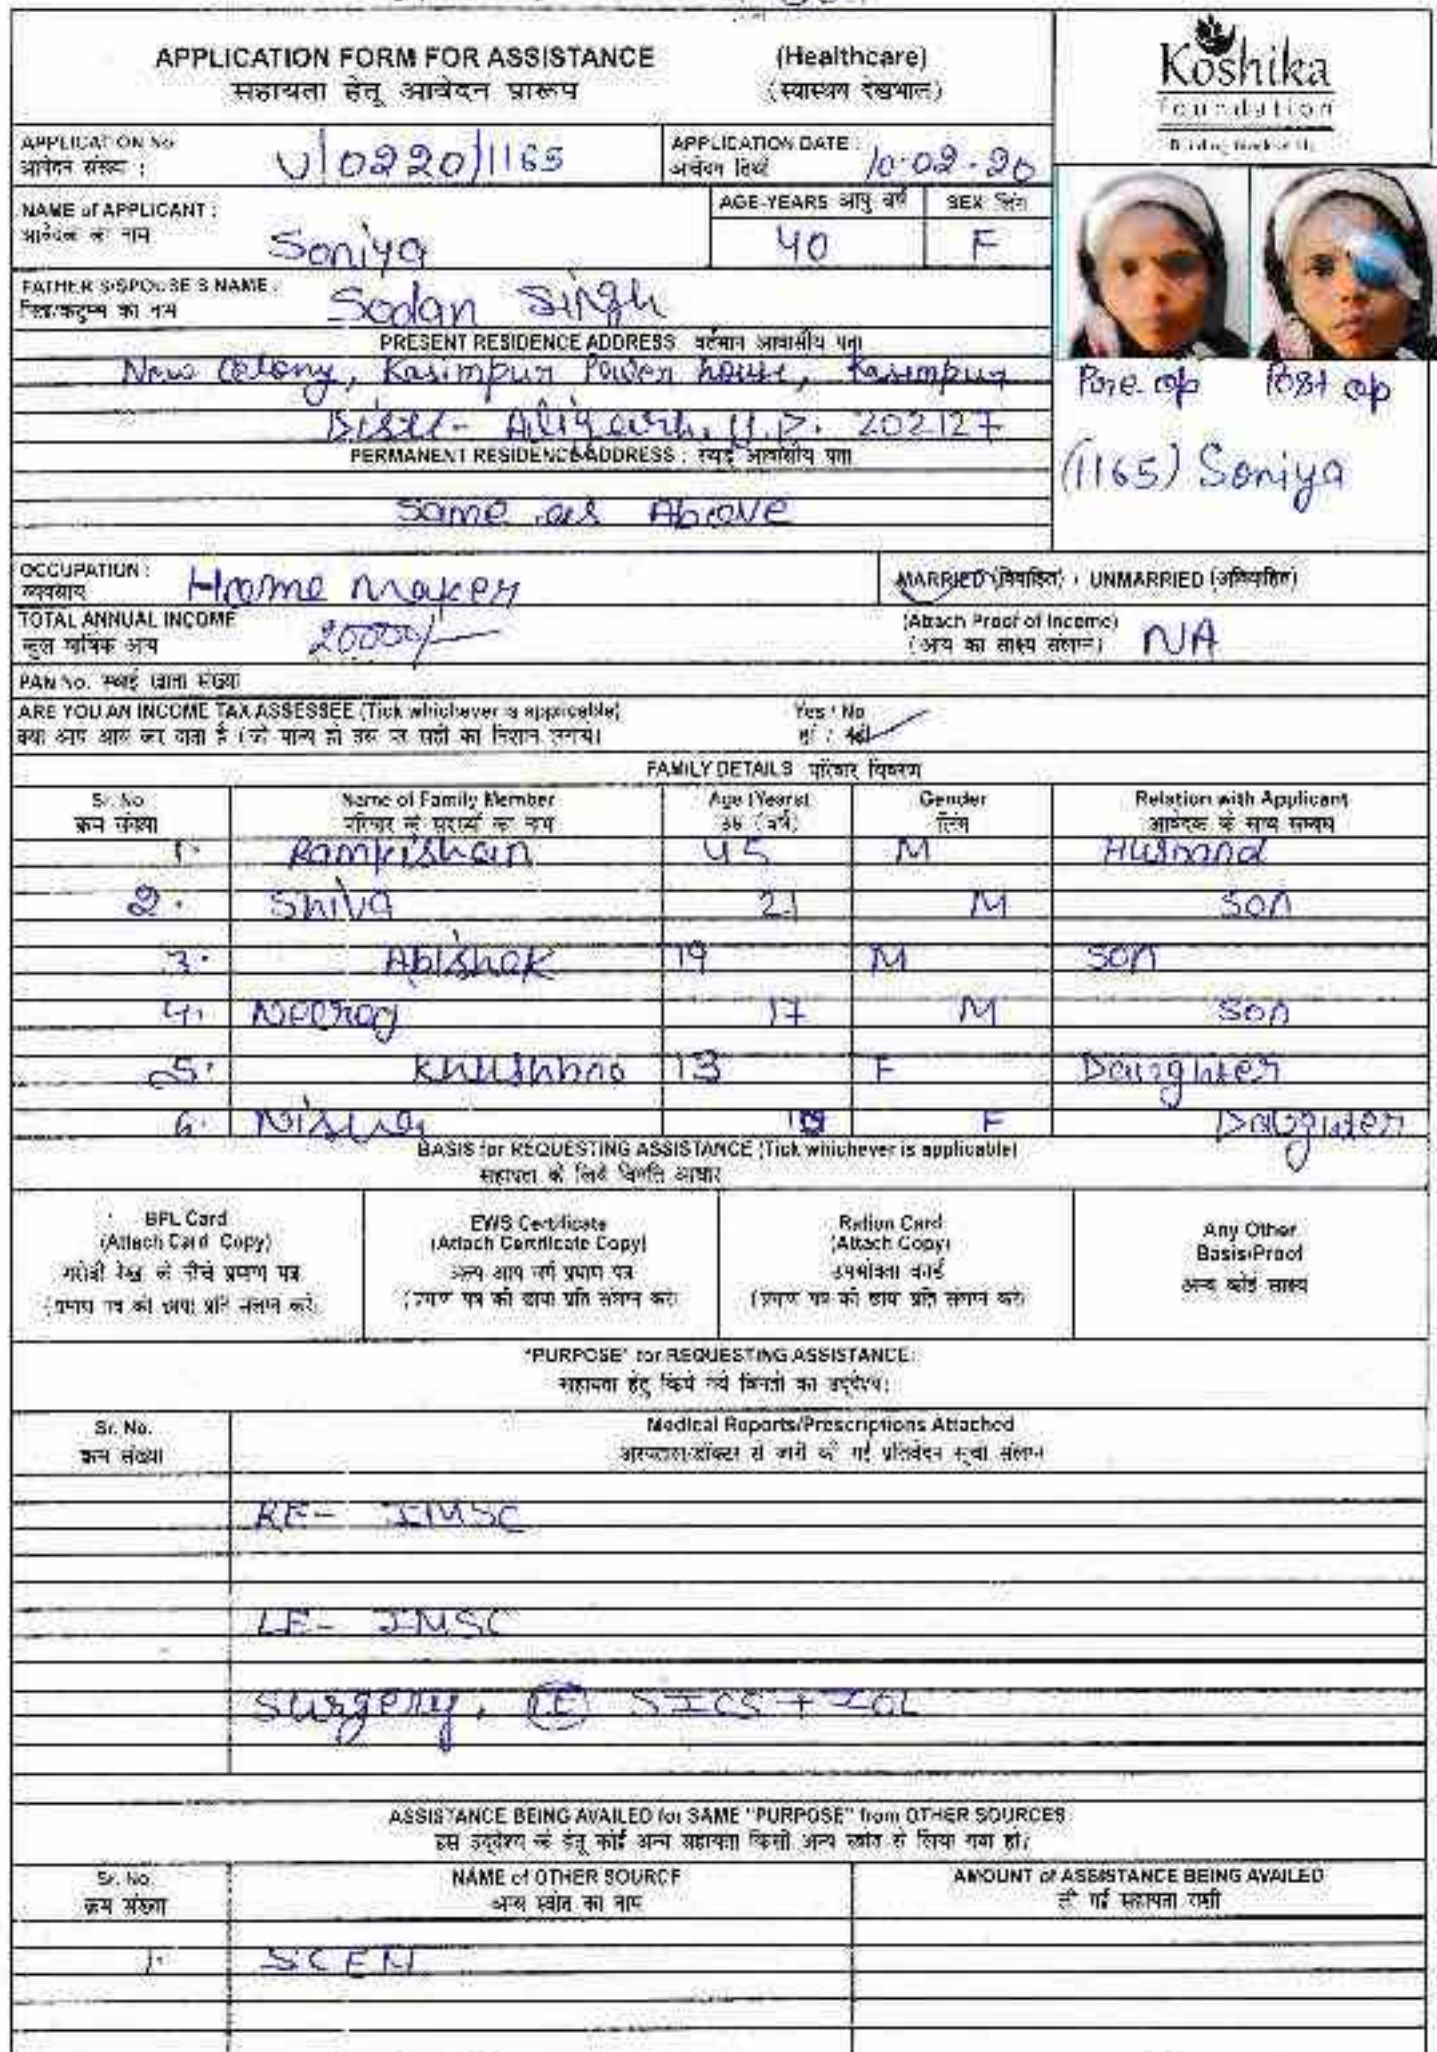 APPLICATION FORM FOR ASSISTANCE (Healthcare)
सहायता हेतू आवेदन प्रारूप (स्वास्थय देखभाल)
Koshika
foundation
APPLICATION No.
आवेदन संख्या : U/0220/1165
APPLICATION DATE :
आवेदन तिथी 10-02-20
NAME of APPLICANT :
आवेदक का नाम Soniya
AGE-YEARS आयु वर्ष 40
SEX लिंग F
FATHER'S/SPOUSE'S NAME :
पिता/कटुम्ब का नाम Sodan Singh
PRESENT RESIDENCE ADDRESS वर्तमान आवासीय पता
New Colony, Kasimpur Power house, Kasimpur
Distt- Aligarh, U.P. 202127
PERMANENT RESIDENCE ADDRESS : स्थाई आवासीय पता
Same as Above
Pre-op Post op
(1165) Soniya
OCCUPATION :
व्यवसाय Home Maker
MARRIED (विवाहित) / UNMARRIED (अविवाहित)
TOTAL ANNUAL INCOME
कुल वार्षिक आय 20000/-
(Attach Proof of Income)
(आय का साक्ष्य संलग्न) NA
PAN No. स्थाई खाता संख्या
ARE YOU AN INCOME TAX ASSESSEE (Tick whichever is applicable) Yes / No
क्या आप आय कर दाता है (जो मान्य हो उस पर सही का निशान लगाये) हां / नहीं
FAMILY DETAILS परिवार विवरण
Sr. No. Name of Family Member Age (Years) Gender Relation with Applicant
क्रम संख्या परिवार के सदस्यों का नाम उम्र (वर्ष) लिंग आवेदक के साथ सम्बन्ध
1. Ramkishan 45 M Husband
2. Shiva 21 M Son
3. Abishek 19 M Son
4. Neeraj 17 M Son
5. Khushboo 13 F Daughter
6. Nisha F Daughter
BASIS for REQUESTING ASSISTANCE (Tick whichever is applicable)
सहायता के लिये विनति आधार
BPL Card
(Attach Card Copy)
गरीबी रेखा के नीचे प्रमाण पत्र
(प्रमाण पत्र की छाया प्रति संलग्न करे)
EWS Certificate
(Attach Certificate Copy)
अन्य आय वर्ग प्रमाण पत्र
(प्रमाण पत्र की छाया प्रति संलग्न करे)
Ration Card
(Attach Copy)
उपभोक्ता कार्ड
(प्रमाण पत्र की छाया प्रति संलग्न करे)
Any Other
Basis/Proof
अन्य कोई साक्ष्य
"PURPOSE" for REQUESTING ASSISTANCE:
सहायता हेतु किये गये विनती का उद्देश्य:
Sr. No. Medical Reports/Prescriptions Attached
क्रम संख्या अस्पताल/डॉक्टर से जारी की गई प्रतिवेदन सूची संलग्न
RE- IMSC
LE- IMSC
Surgery, (LE) SICS + IOL
ASSISTANCE BEING AVAILED for SAME "PURPOSE" from OTHER SOURCES
इस उद्देश्य के हेतू कोई अन्य सहायता किसी अन्य स्त्रोत से लिया गया हो:
Sr. No. NAME of OTHER SOURCE AMOUNT of ASSISTANCE BEING AVAILED
क्रम संख्या अन्य स्त्रोत का नाम ली गई सहायता राशी
1. SCEH